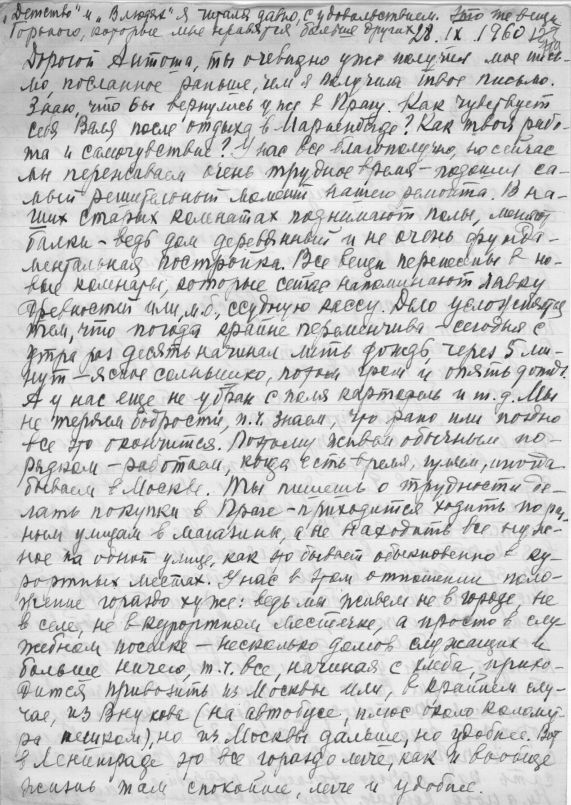 „Детство" и „В людях" я читала давно, с удовольствием. Это те вещи
Горького, которые мне нравятся больше других.
28.IX.1960
Дорогой Антоша, ты очевидно уже получил мое пись-
мо, посланное раньше, чем я получила твое письмо.
Знаю, что вы вернулись уже в Прагу. Как чувствует
себя Валя после отдыха в Мариенбаде? Как твои рабо-
та и самочувствие? У нас все благополучно, но сейчас
мы переживаем очень трудное время – подошел са-
мый решительный момент нашего ремонта. В на-
ших старых комнатах поднимают полы, меняют
балки – ведь дом деревянный и не очень фунда-
ментальная постройка. Все вещи перенесены в но-
вые комнаты, которые сейчас напоминают лавку
древностей или, м.б., ссудную кассу. Дело усложняется
тем, что погода крайне переменчива – сегодня с
утра раз десять начинал лить дождь, через 5 ми-
нут – ясное солнышко, потом гром и опять дождь.
А у нас еще не убран с поля картофель и т.д. Мы
не теряем бодрости, т.к. знаем, что рано или поздно
все это окончится. Потому живем обычным по-
рядком – работаем, когда есть время, гуляем, иногда
бываем в Москве. Ты пишешь о трудности де-
лать покупки в Праге – приходится ходить по раз-
ным улицам в магазины, а не находить все нуж-
ное на одной улице, как это бывает обыкновенно в ку-
рортных местах. У нас в этом отношении поло-
жение гораздо хуже: ведь мы живем не в городе, не
в селе, не в курортном местечке, а просто в слу-
жебном поселке – несколько домов служащих и
больше ничего, т.ч. все, начиная с хлеба, прихо-
дится привозить из Москвы или, в крайнем слу-
чае, из Внукова (на автобусе, плюс около километ-
ра пешком), но из Москвы дальше, но удобнее. Вот
в Ленинграде это все гораздо легче, как и вообще
жизнь там спокойнее, легче и удобнее.